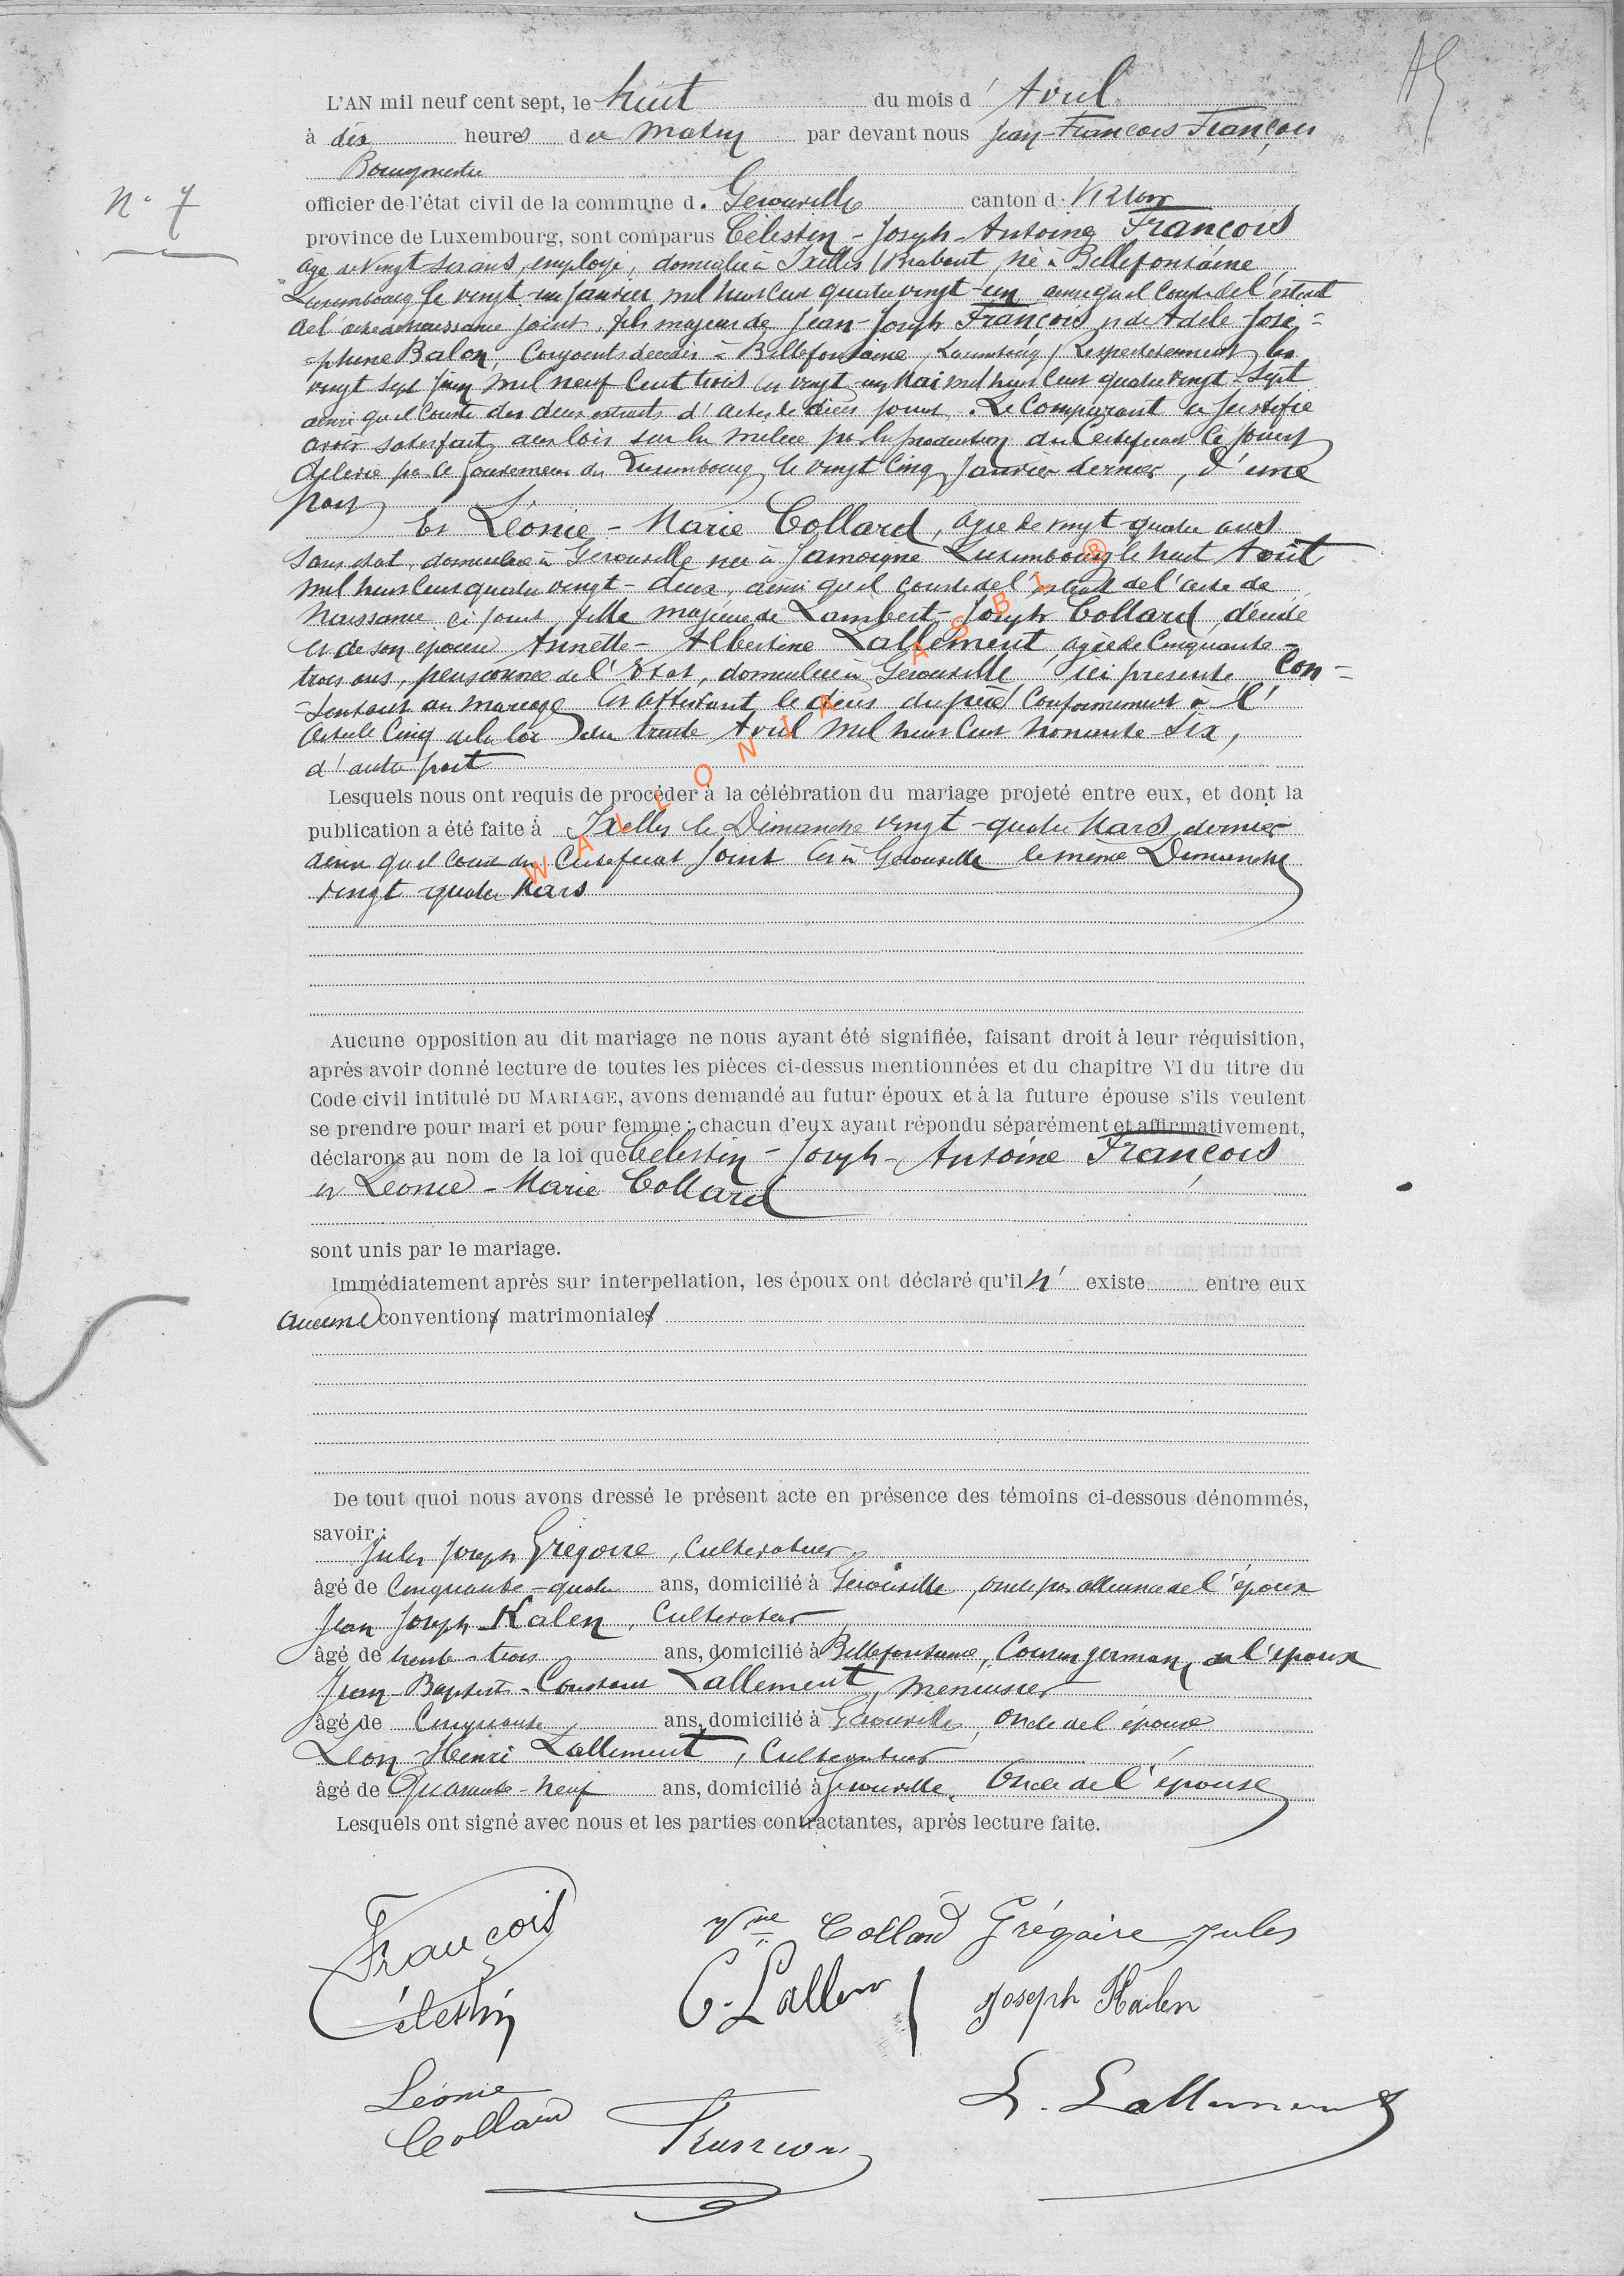 L'AN mil neuf cent sept, le huit du mois d' Avril
à dix heures du matin par devant nous Jean-François François
Bourgmestre
N° 7
officier de l'état civil de la commune d. Gérouville canton d. Virton
province de Luxembourg, sont comparus Célestin - Joseph - Antoine François
âgé de vingt six ans, employé, domicilié à Ixelles (Brabant, né à Bellefontaine
Luxembourg le vingt-un Janvier mil huit cent quatre vingt-un ainsi qu'il conste de l'extrait
de l'acte de naissance joint, fils majeur de Jean-Joseph François et de Adèle José=
=phine Balon, conjoints décédés à Bellefontaine, Luxembourg, Respectivement les
vingt sept Juin mil neuf cent trois et vingt-un Mai mil huit cent quatre vingt-sept
ainsi qu'il conste des deux extraits d'actes de décès joints. Le Comparant a justifié
avoir satisfait aux lois sur la milice par la production du Certificat ci joint
délivré par le Gouverneur du Luxembourg le vingt cinq Janvier dernier, d'une
part
Et Léonie - Marie Collard, âgée de vingt-quatre ans
sans état, domiciliée à Gérouville née à Jamoigne Luxembourg le huit Août
mil huit cent quatre vingt-deux, ainsi qu'il conste de l'extrait de l'acte de
naissance ci joint, fille majeure de Lambert-Joseph Collard, décédé
et de son épouse Annette-Albertine Lallement, âgée de Cinquante-
trois ans, pensionnée de l'Etat, domiciliée à Gérouville ici présente con=
=sentant au mariage et attestant le décès du père conformément à l'
article Cinq de la loi du trente Avril mil huit cent nonante six,
d'autre part
WALLONIA ASBL ®
Lesquels nous ont requis de procéder à la célébration du mariage projeté entre eux, et dont la
publication a été faite à Ixelles le Dimanche vingt-quatre Mars dernier
ainsi qu'il conste du Certificat joint et à Gérouville le même Dimanche
vingt quatre Mars
Aucune opposition au dit mariage ne nous ayant été signifiée, faisant droit à leur réquisition,
après avoir donné lecture de toutes les pièces ci-dessus mentionnées et du chapitre VI du titre du
Code civil intitulé DU MARIAGE, avons demandé au futur époux et à la future épouse s'ils veulent
se prendre pour mari et pour femme; chacun d'eux ayant répondu séparément et affirmativement,
déclarons au nom de la loi que Célestin - Joseph - Antoine François
et Léonie - Marie Collard
sont unis par le mariage.
Immédiatement après sur interpellation, les époux ont déclaré qu'il n' existe entre eux
aucune conventions matrimoniales
De tout quoi nous avons dressé le présent acte en présence des témoins ci-dessous dénommés,
savoir:
Jules Joseph Grégoire, Cultivateur
âgé de Cinquante-quatre ans, domicilié à Gérouville, oncle par alliance de l'époux
Jean Joseph Halen, Cultivateur
âgé de trente-trois ans, domicilié à Bellefontaine, Cousin germain de l'époux
Jean-Baptiste-Constant Lallement, menuisier
âgé de Cinquante ans, domicilié à Gérouville, oncle de l'épouse
Léon-Henri Lallement, Cultivateur
âgé de Quarante-neuf ans, domicilié à Gérouville, Oncle de l'épouse
Lesquels ont signé avec nous et les parties contractantes, après lecture faite.
François
Célestin
Vve Collard
Grégoire Jules
C. Lallem
Joseph Halen
Léonie
Collard
François
L. Lallement